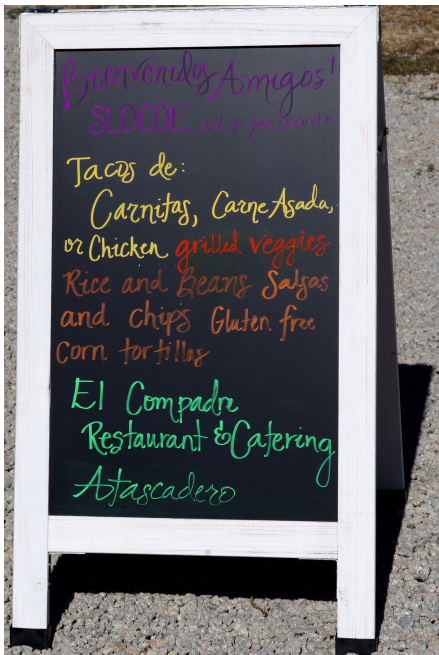 Bienvenidos Amigos!
SLOCOE
Tacos de:
Carnitas, Carne Asada,
or Chicken grilled veggies
Rice and Beans Salsas
and chips Gluten free
Corn tortillas
El Compadre
Restaurant & Catering
Atascadero